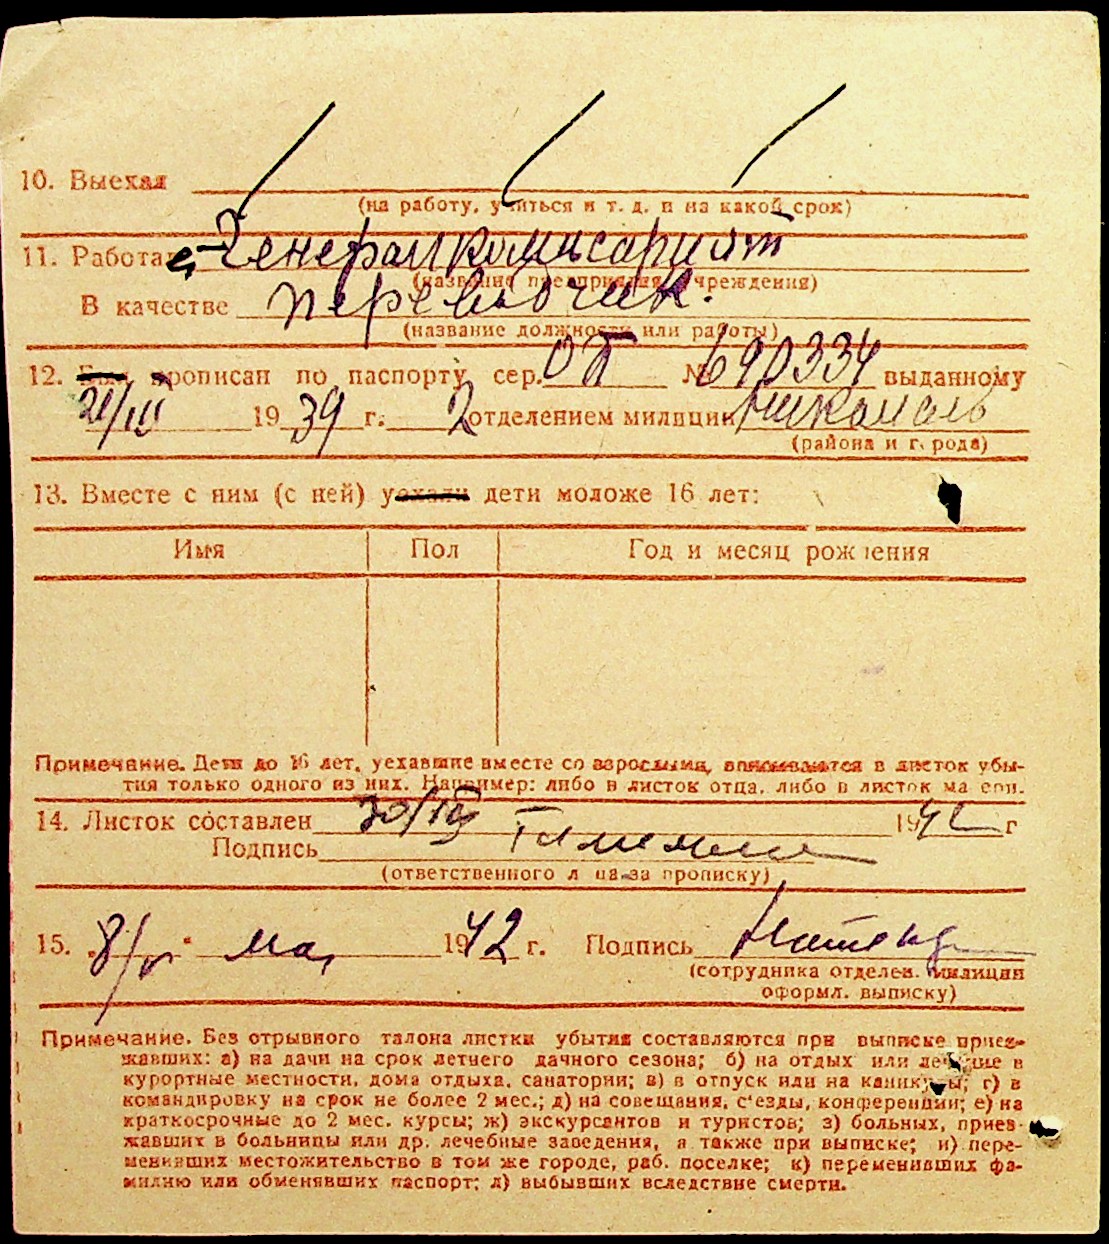 10. Выехал
(на работу, учиться и т. д. и на какой срок)
11. Работает Генералкомисариат
(название предприятия, учреждения)
В качестве переводчик.
(название должности или работы)
12. Был прописан по паспорту сер. ОП № 690334 выданному
21/III 1939 г. 2 отделением милиции Никополь
(района и города)
13. Вместе с ним (с ней) уехали дети моложе 16 лет:
Имя Пол Год и месяц рождения
Примечание. Дети до 16 лет, уехавшие вместе со взрослыми, вписываются в листок убы-
тия только одного из них. Например: либо в листок отца, либо в листок матери.
14. Листок составлен 30/IV 1942 г
Подпись
(ответственного лица за прописку)
15. „8/V" мая 1942 г. Подпись
(сотрудника отделен. милиции
оформл. выписку)
Примечание. Без отрывного талона листки убытия составляются при выписке приез-
жавших: а) на дачи на срок летнего дачного сезона; б) на отдых или лечение в
курортные местности, дома отдыха, санатории; в) в отпуск или на каникулы; г) в
командировку на срок не более 2 мес.; д) на совещания, с'езды, конференции; е) на
краткосрочные до 2 мес. курсы; ж) экскурсантов и туристов; з) больных, приез-
жавших в больницы или др. лечебные заведения, а также при выписке; и) пере-
менивших местожительство в том же городе, раб. поселке; к) переменивших фа-
милию или обменявших паспорт; л) выбывших вследствие смерти.